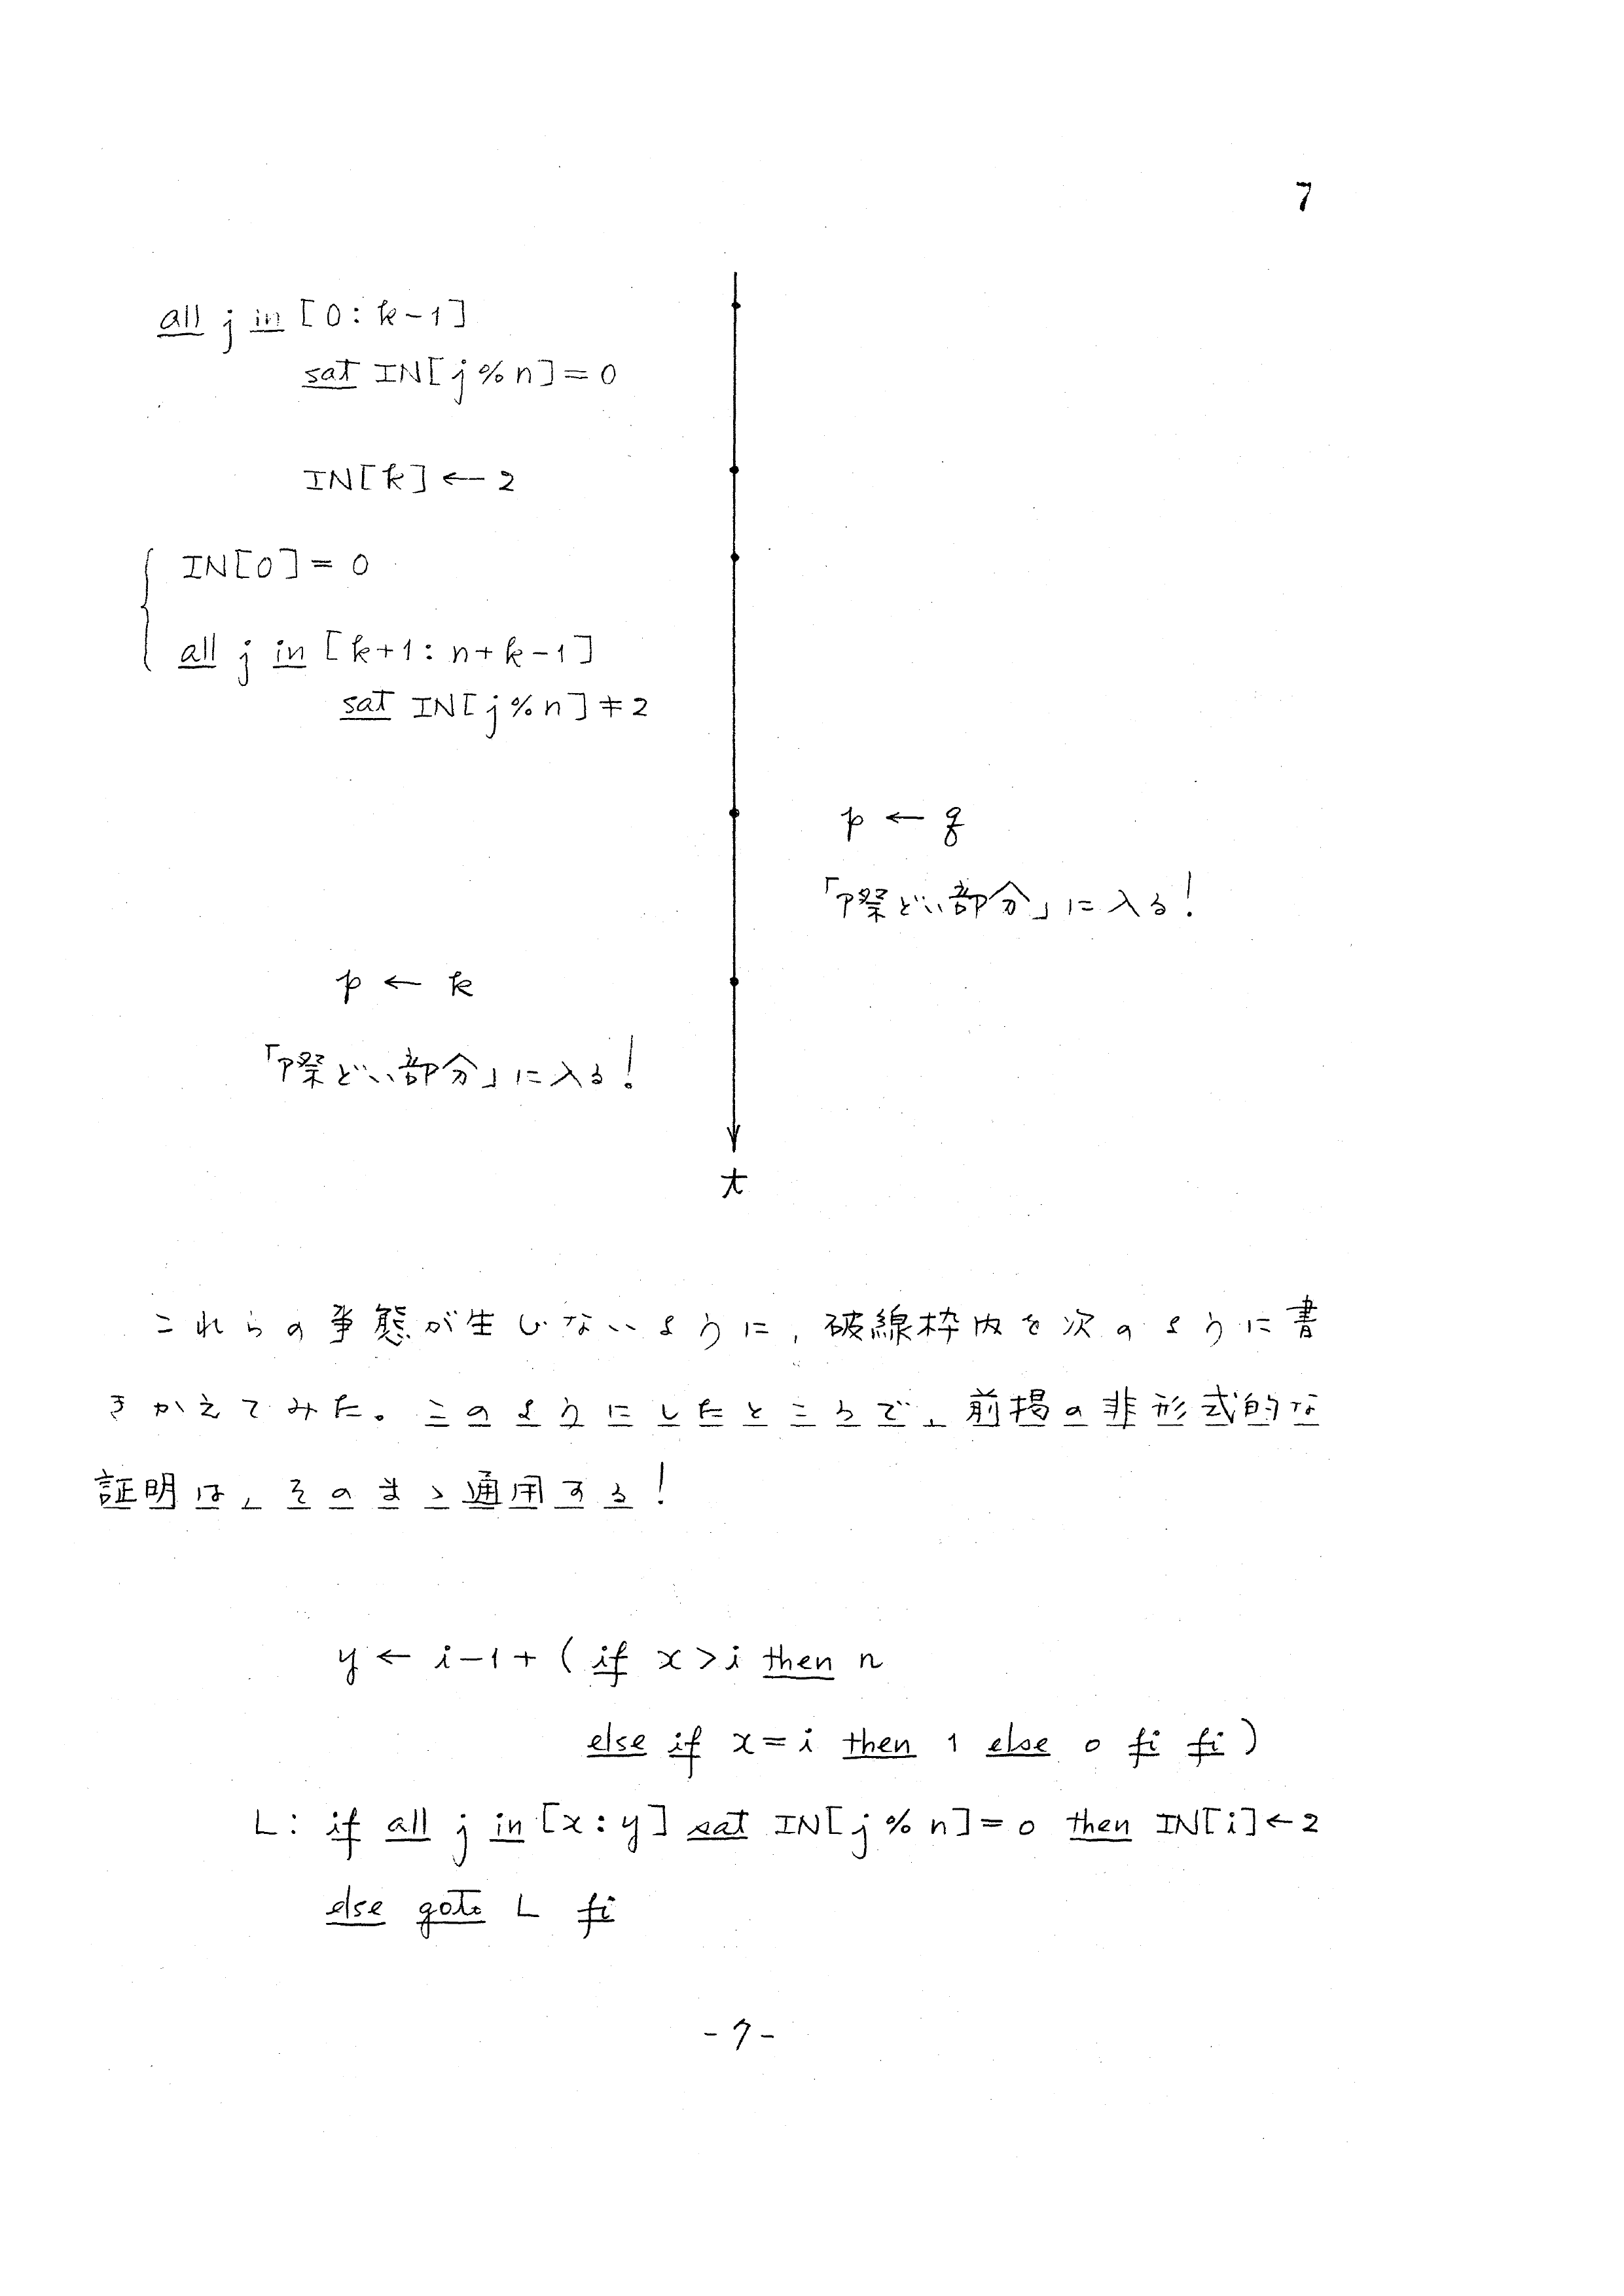 7
all j in [0:k-1]
sat IN[j%n]=0
IN[k]←2
IN[0]=0
all j in [k+1:n+k-1]
sat IN[j%n]≠2
p ← q
「際どい部分」に入る!
p ← k
「際どい部分」に入る!
t
これらの事態が生じないように,破線枠内を次のように書
きかえてみた。このようにしたところで,前掲の非形式的な
証明は,そのまゝ通用する!
y ← i-1+(if x>i then n
else if x=i then 1 else 0 fi fi)
L: if all j in [x:y] sat IN[j%n]=0 then IN[i]←2
else goto L fi
-7-